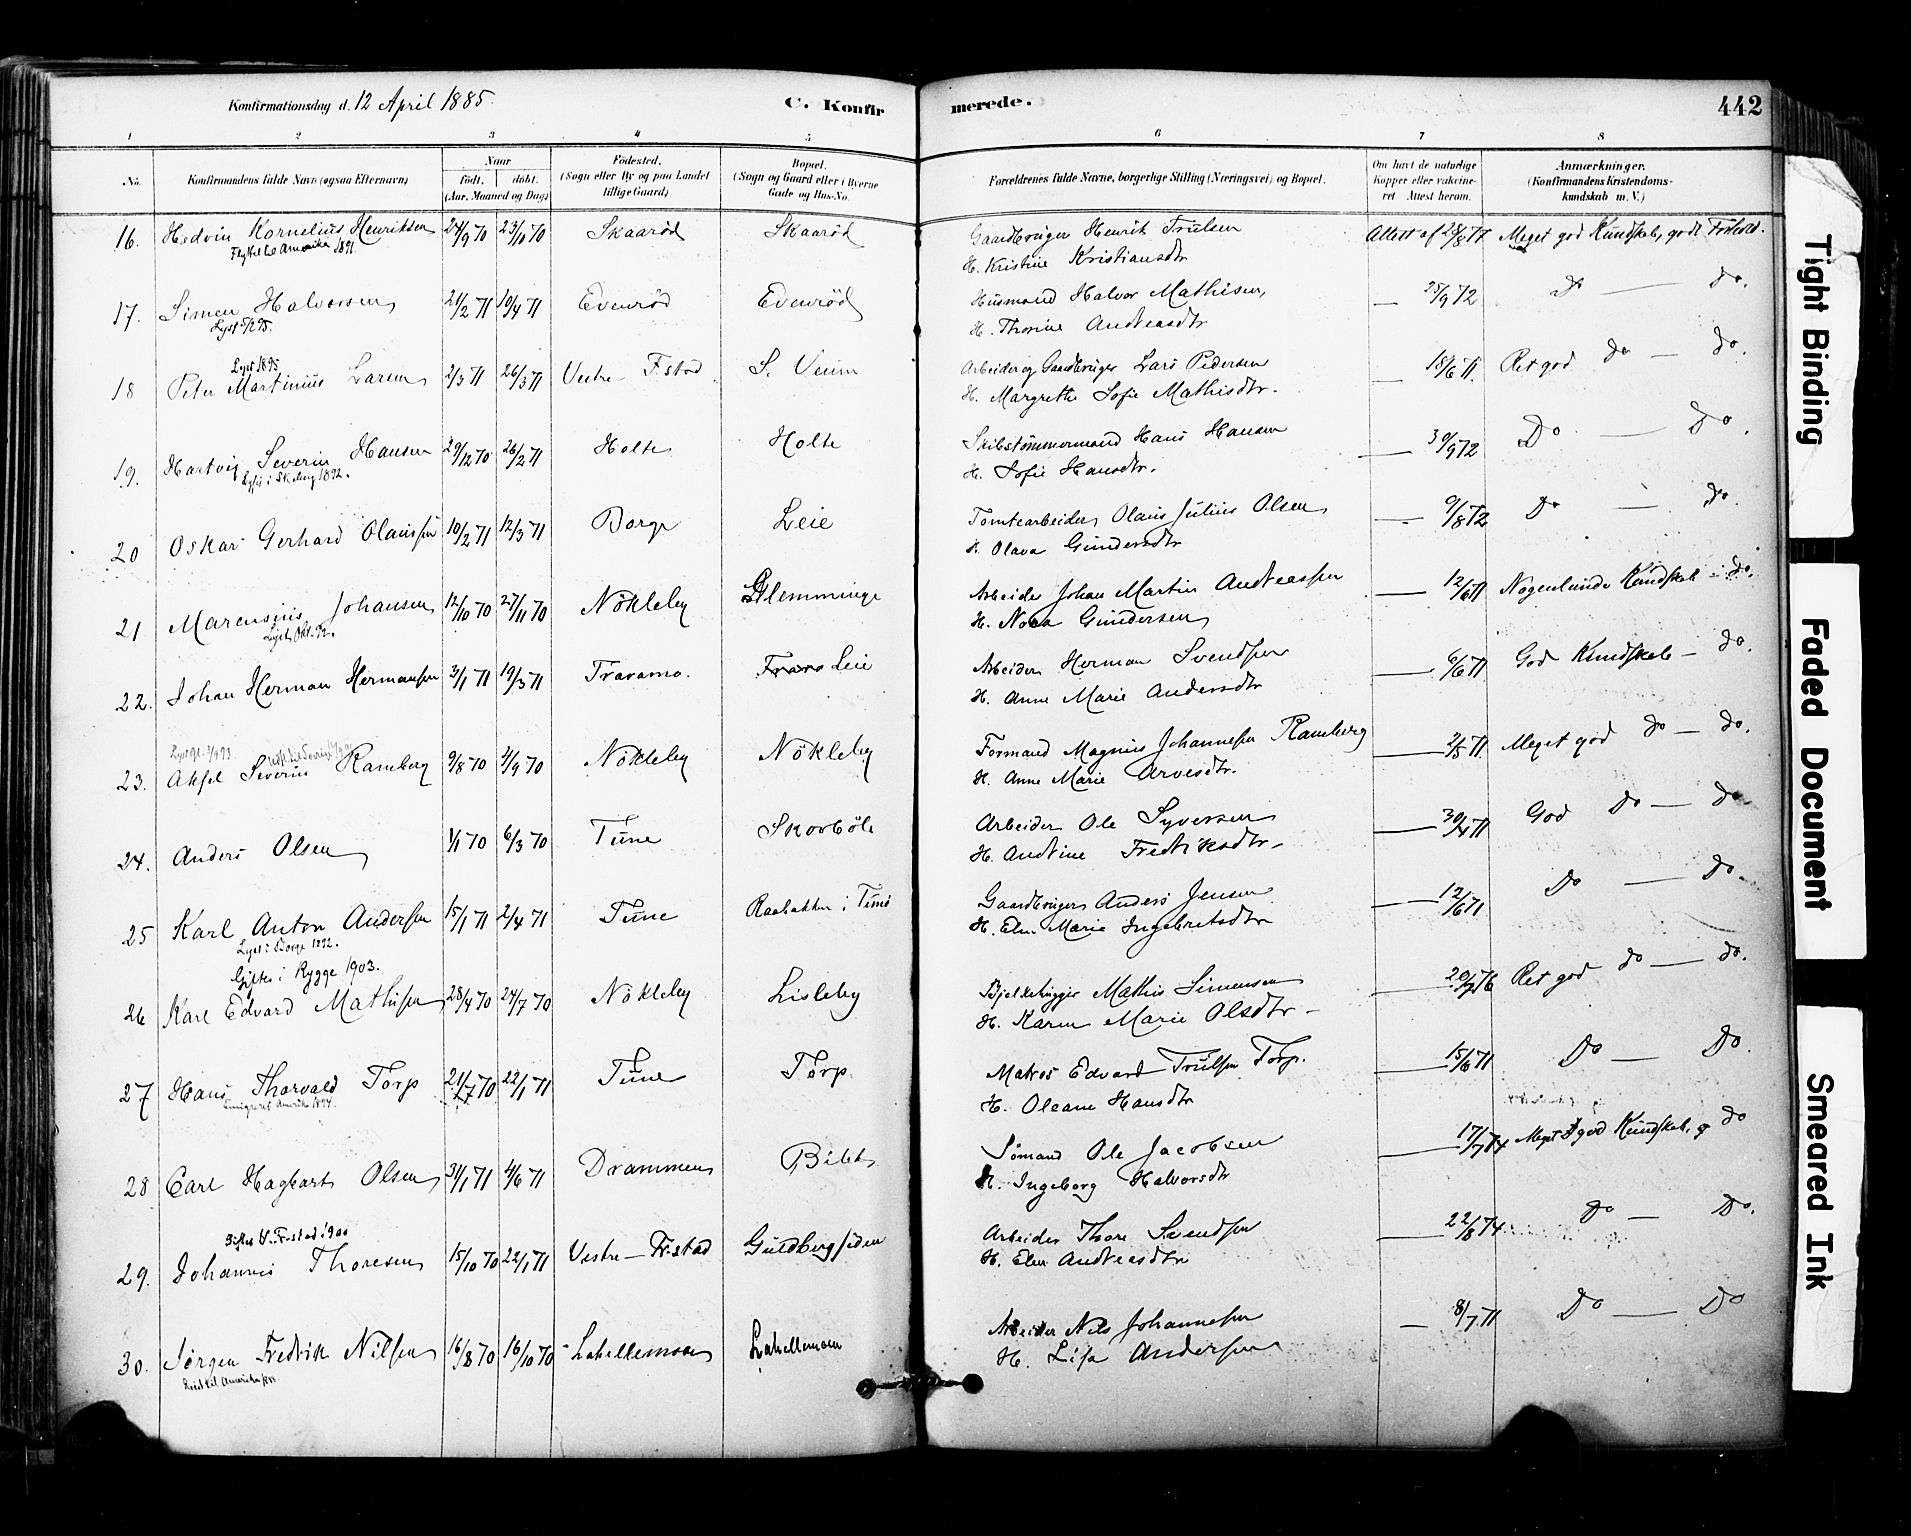 Konfirmationsdag d. 12 April 1885. C. Konfir merede. 442
1 2 3 4 5 6 7 8
No. Konfirmandens fulde Navn (ogsaa Efternavn) Naar Født, døbt. (Aar, Maaned og Dag) Fødested. (Sogn eller By og paa Landet tillige Gaard) Bopæl. (Sogn og Gaard eller i Byerne Gade og Hus-No. Forældrenes fulde Navne, borgerlige Stilling (Næringsvei) og Bopæl. Om havt de naturlige Kopper eller vakcineret Attest herom. Anmærkninger. (Konfirmandens Kristendomskundskab m. V.)
16. Hedvin Kornelius Henriksen 24/9 70 23/10 70 Skaarød Skaarød Gaardbruger Henrik Trulsen Attest af 24/8 77 Meget god Kundskab, godt Forhold.
Flyttet til Amerika 1891. H. Kristine Kristiansdtr
17. Simen Halvorsen 21/2 71 10/4 71 Evenrød Evenrød Husmand Halvor Mathisen — 25/9 72 Do — Do.
H. Thorine Andreasdtr
Lyst 1895
18 Peter Martinius Larsen 2/3 71 26/3 71 Vestre F.stad S. Veum Arbeider og Gaardbruger Lars Pedersen — 18/6 71. Ret god do — do.
H. Margrethe Sofie Mathisdtr.
19. Hartvig Severin Hansen 29/12 70 26/2 71 Holte Holte Skibstømmermand Hans Hansen — 30/9 72 Do — Do.
Lyst i Skeberg 1892. H. Sofie Hansdtr.
20 Oskar Gerhard Olaussen 10/2 71 12/3 71 Borge Leie Tomtearbeider Olaus Julius Olsen — 9/8 72 Do — do.
H. Olava Gundersdtr
21 Marensius Johansen 12/10 70 27/11 70 Nökleby Glemminge Arbeider Johan Martin Andreassen — 12/6 71 Nogenlunde Kundskab — do.
Lyst Okt. 92. H. Nora Gundersen
22. Johan Herman Hermansen 3/1 71 19/3 71 Traramo. Leie Arbeider Herman Svendsen — 6/6 71 God Kundskab — do.
H. Anne Marie Andersdtr
23. Aksel Severin Ramberg 9/8 70 4/9 70 Nökleby Nökleby Formand Magnus Johannesen Ramberg — 2/5 71 Meget god do — do.
H. Anne Marie Arvesdtr.
24. Anders Olsen 1/1 70 6/3 70 Tune Skorböle Arbeider Ole Syversen — 30/4 71 God do — do.
H. Andrine Fredriksdtr.
25 Karl Anton Andersen 15/1 71 2/4 71 Tune Raabakken i Tune Gaardbruger Anders Jensen — 12/6 71 Do — do.
Lyst i Borge 1892. H. Elen Marie Ingebretsdtr
Giftes i Rygge 1903.
26 Karl Edvard Mathisen 28/4 70 24/7 70 Nökleby Lisleby Bjelkehugger Mathis Simensen — 20/7 76 Ret god do — do.
H. Karen Marie Olsdtr.
27 Hans Thorvald Torp 21/7 70 22/1 71 Tune Torp. Matros Edvard Trulsen Torp. — 15/6 71 Do — Do.
Emigreret Amerika 1894. H. Oleane Hansdtr
28 Carl Hagbart Olsen 31/1 71 4/6 71 Drammen Bilet Sømand Ole Jacobsen — 17/7 74 Meget god Kundskab, g do
H. Ingeborg Halvorsdtr
Giftes V. F.stad 1900
29. Johannes Thoresen 15/10 70 22/1 71 Vestre F.stad Guldbergsiden Arbeider Thore Svendsen — 22/8 74 do — Do.
H. Elen Andreasdtr
30. Jørgen Fredrik Nilsen 16/8 70 16/10 70 Lahellemoen Lahellemoen Arbeider Nils Johannesen — 8/7 71 Do — Do
H. Lisa Andersen
Tight Binding
Faded Document
Smeared Ink